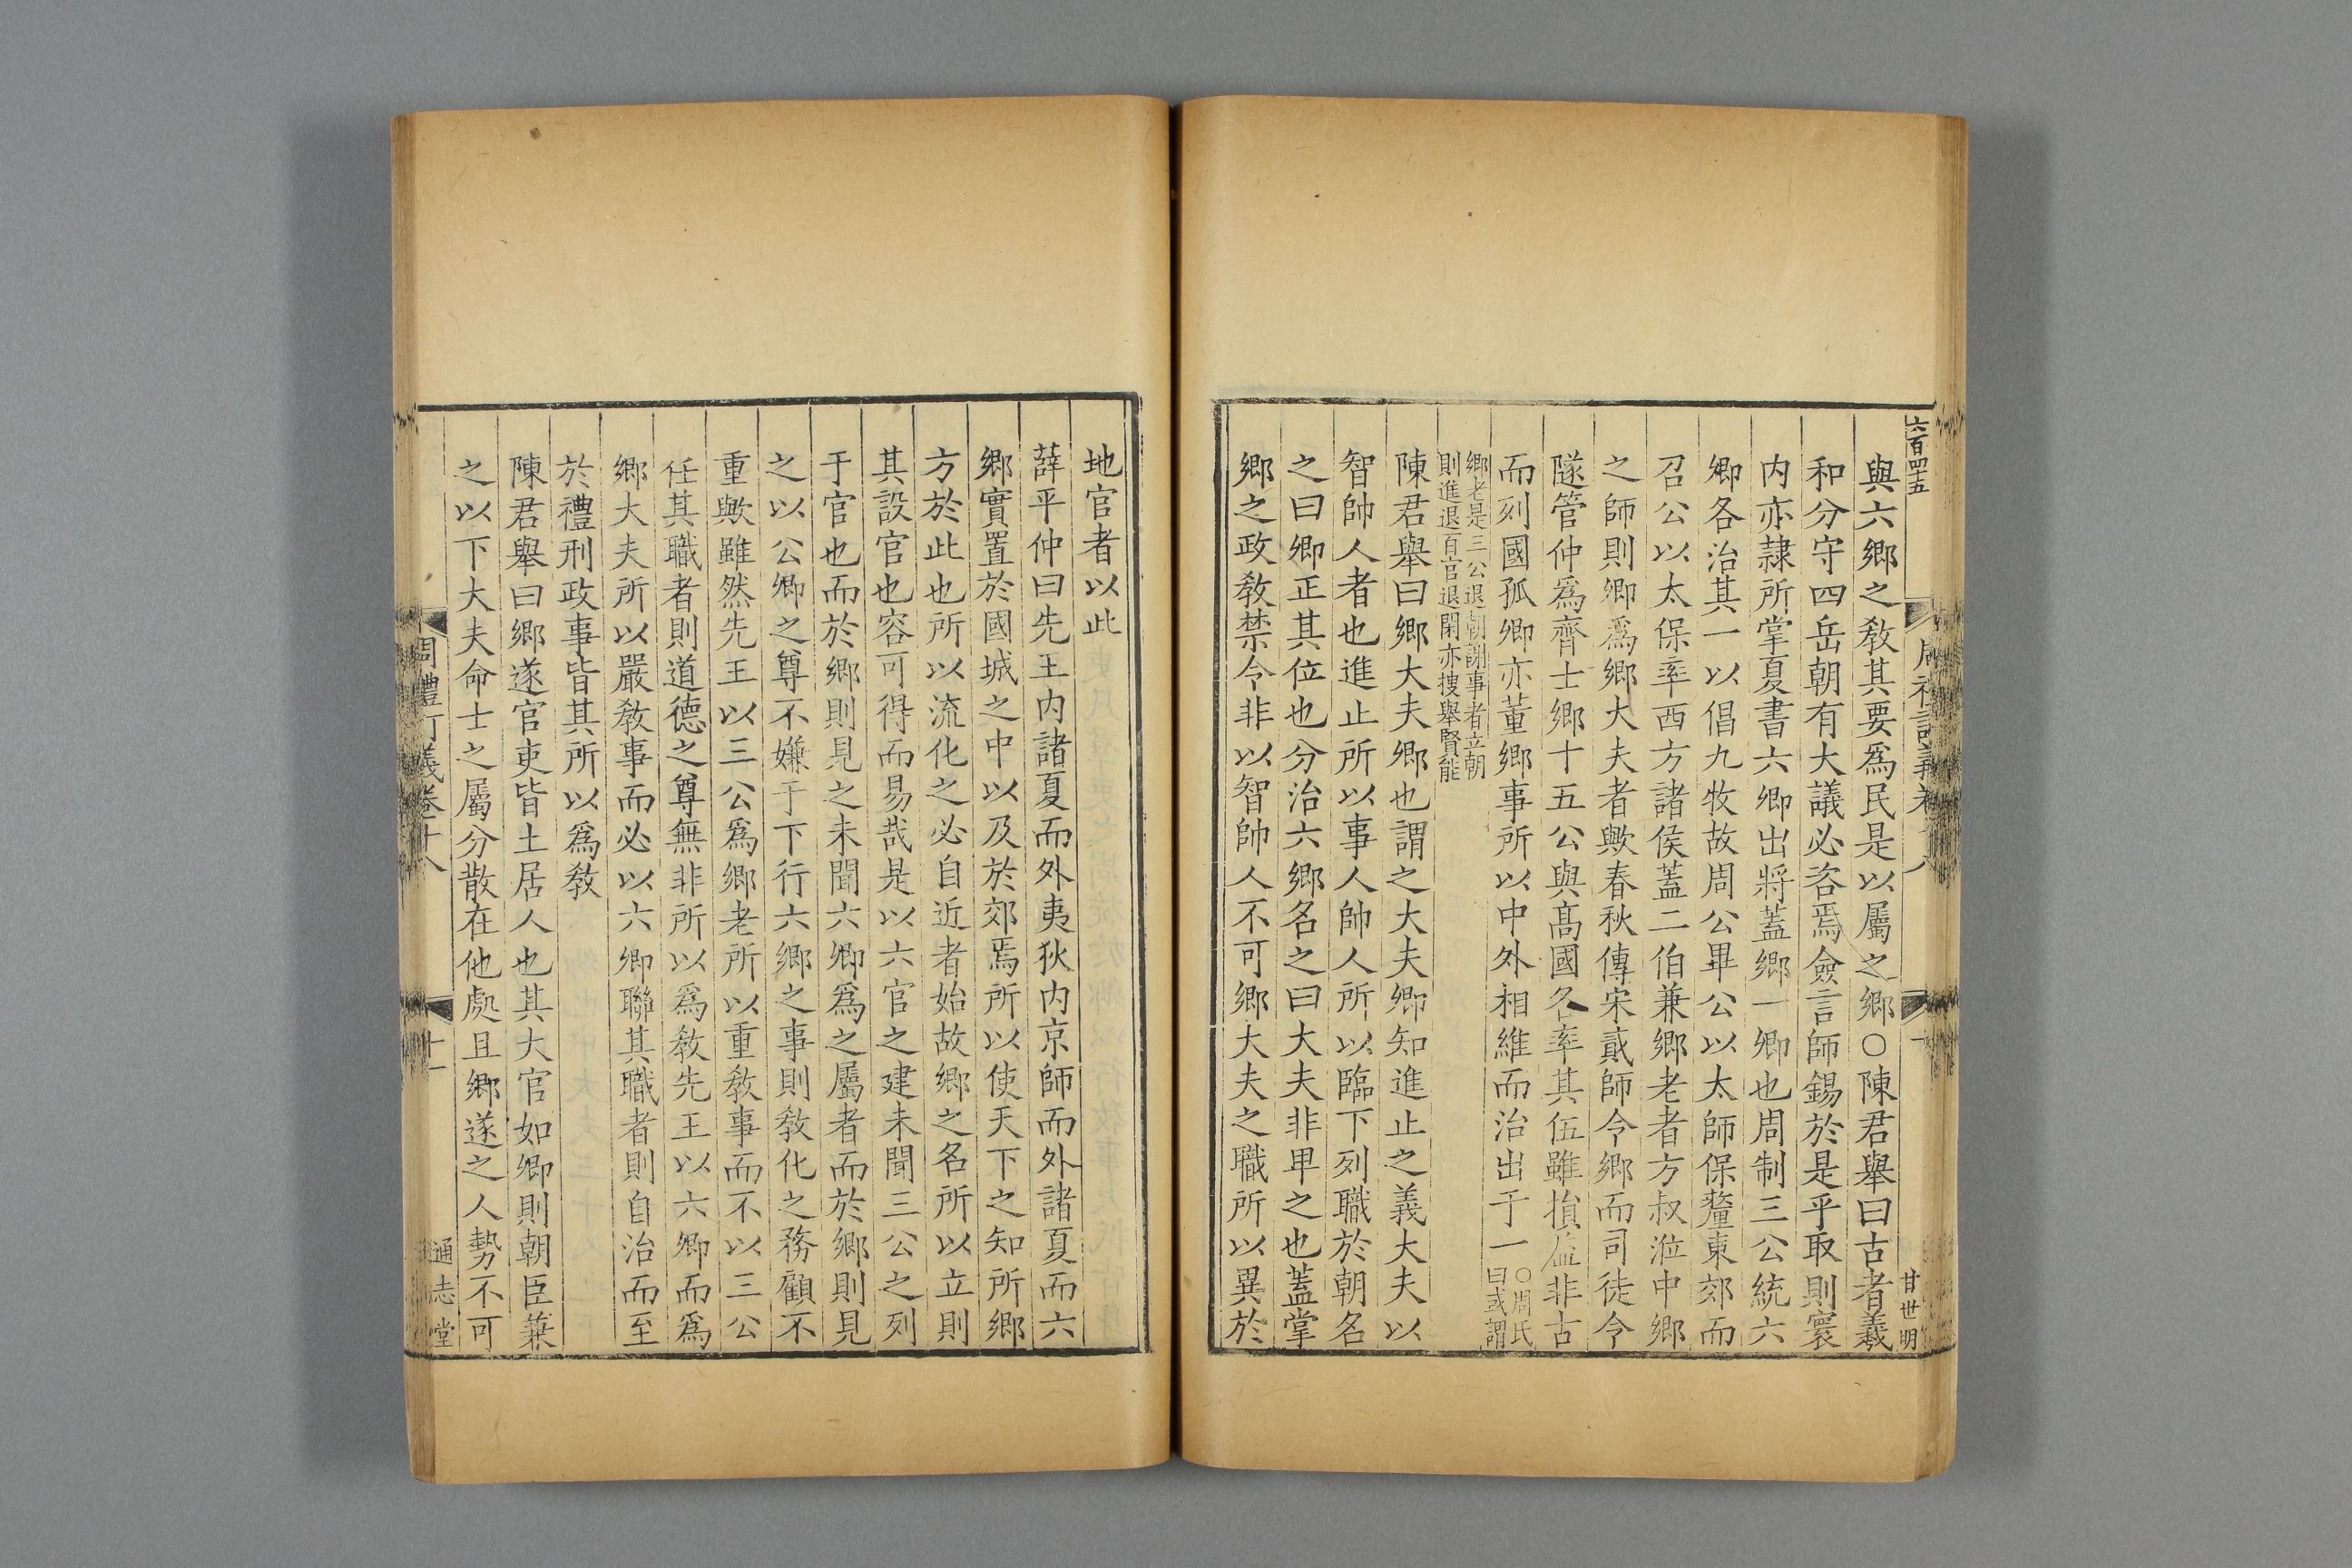 六百四十五
甘世明
與六鄉之敎其要爲民是以屬之鄉○陳君舉曰古者羲
和分守四岳朝有大議必咨焉僉言師錫於是乎取則寰
内亦隷所掌夏書六卿出將蓋鄉一卿也周制三公統六
卿各治其一以倡九牧故周公畢公以太師保釐東郊而
召公以太保率西方諸侯蓋二伯兼鄉老者方叔涖中鄉
之師則卿爲鄉大夫者歟春秋傳宋貳師令鄉而司徒令
隧管仲爲齊士鄉十五公與髙國各率其伍雖損益非古
而列國孤卿亦董鄉事所以中外相維而治出于一○周氏
曰或謂
鄉老是三公退朝謝事者立朝
則進退百官退閑亦捜舉賢能
陳君舉曰鄉大夫卿也謂之大夫卿知進止之義大夫以
智帥人者也進止所以事人帥人所以臨下列職於朝名
之曰卿正其位也分治六鄉名之曰大夫非卑之也蓋掌
鄉之政敎禁令非以智帥人不可鄉大夫之職所以異於
地官者以此
薛平仲曰先王内諸夏而外夷狄内京師而外諸夏而六
鄉實置於國城之中以及於郊焉所以使天下之知所鄉
方於此也所以流化之必自近者始故鄉之名所以立則
其設官也容可得而易哉是以六官之建未聞三公之列
于官也而於鄉則見之未聞六卿爲之屬者而於鄉則見
之以公卿之尊不嫌于下行六鄉之事則敎化之務顧不
重歟雖然先王以三公爲鄉老所以重敎事而不以三公
任其職者則道德之尊無非所以爲敎先王以六卿而爲
鄉大夫所以嚴敎事而必以六卿聯其職者則自治而至
於禮刑政事皆其所以爲敎
陳君舉曰鄉遂官吏皆土居人也其大官如卿則朝臣兼
之以下大夫命士之屬分散在他處且鄉遂之人勢不可
周禮訂義卷十八
十一
通志堂